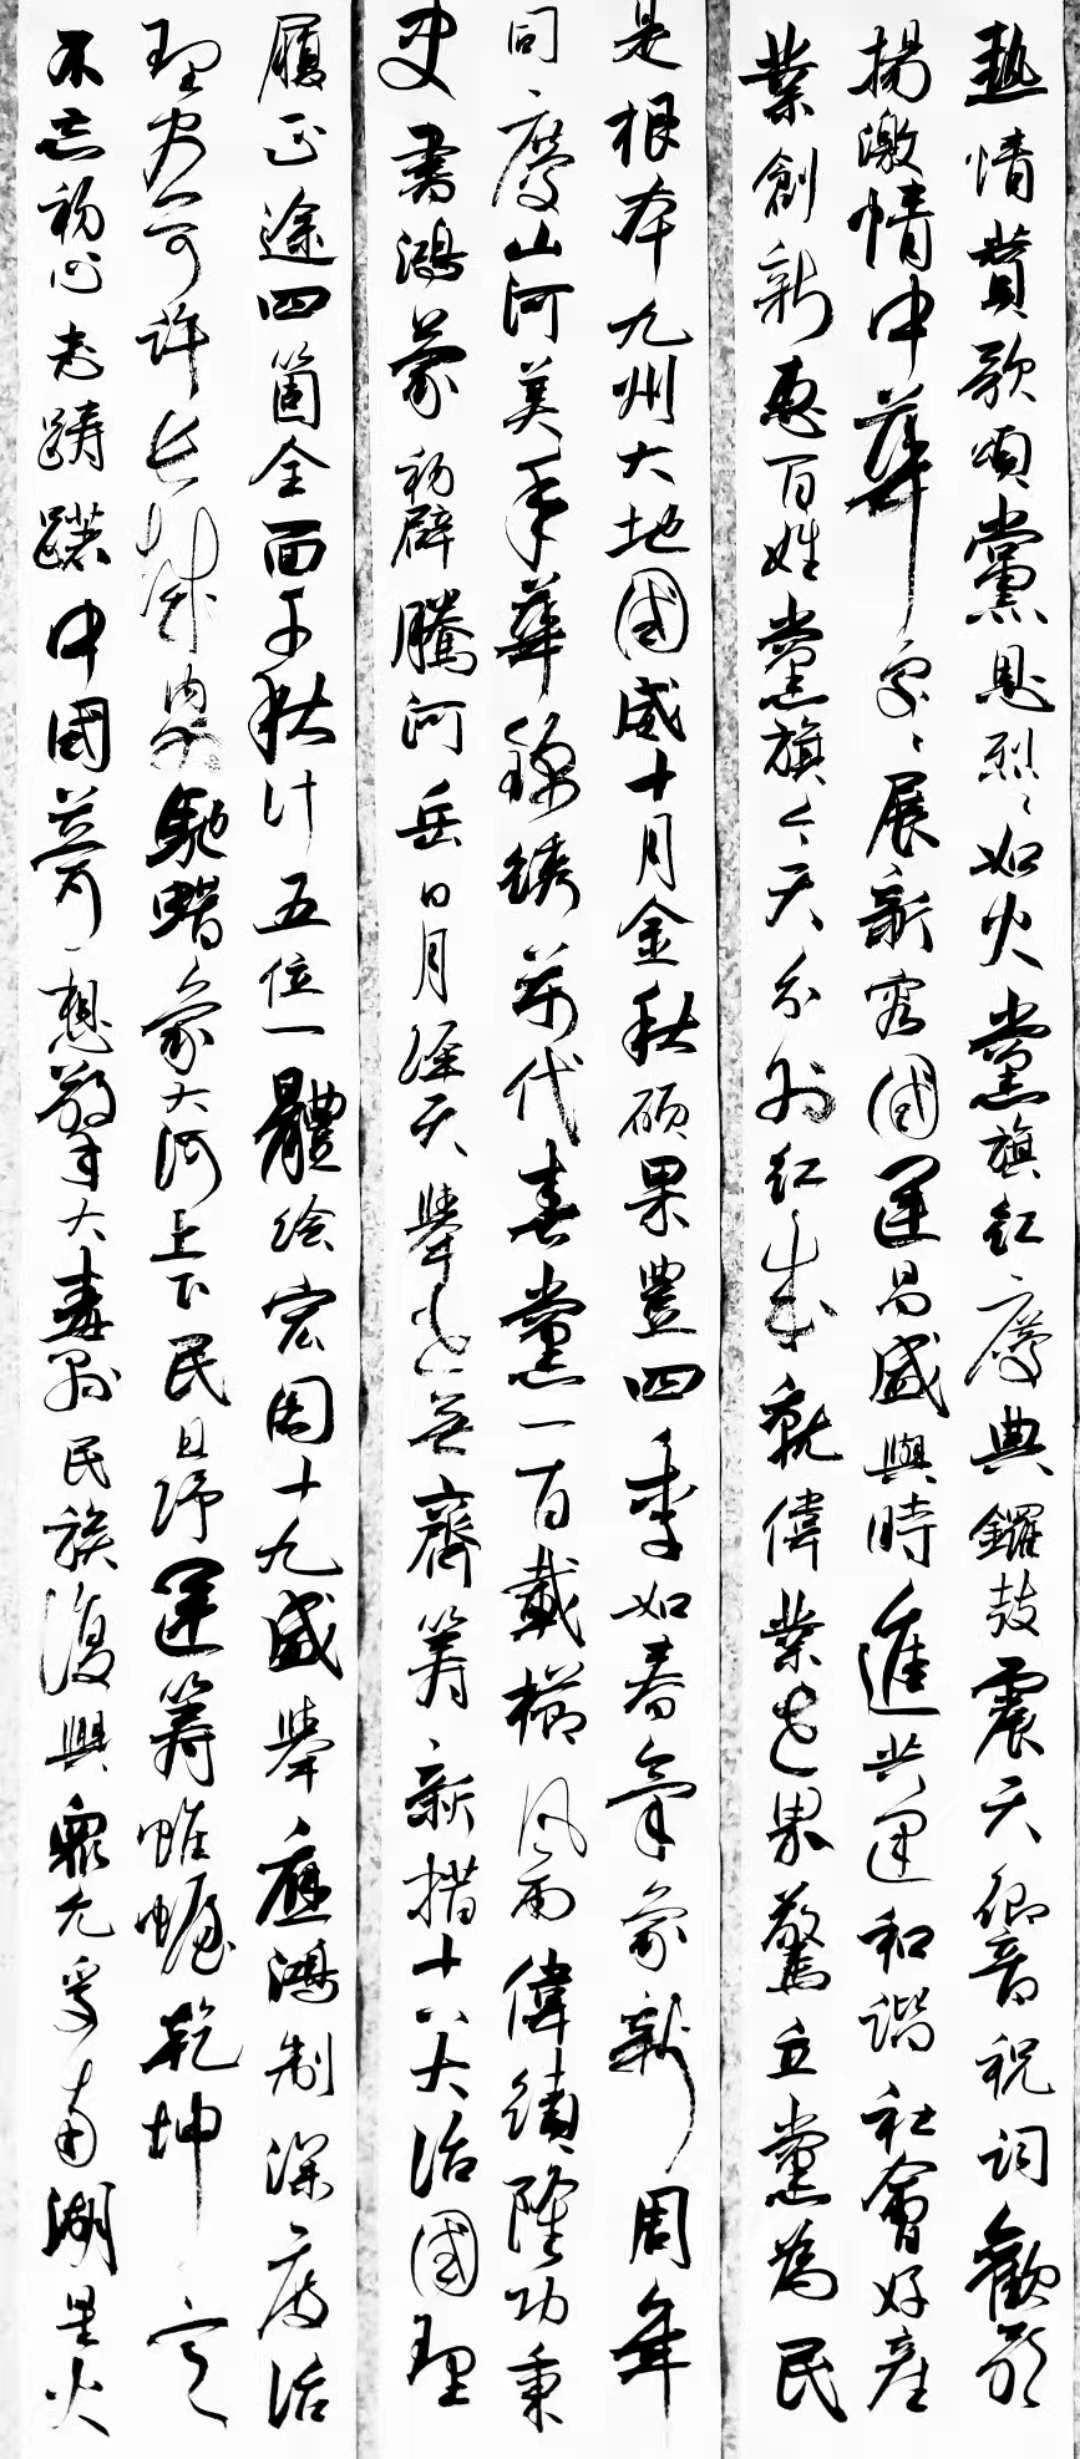 熱情贊歌頌黨恩烈烈如火黨旗紅慶典鑼鼓震天響音祝詞歡歌
揚激情中華家家展新容國運昌盛與時進共建和諧社會好產
業創新惠百姓黨旗今天分外紅成就偉業世界驚立黨為民
是根本九州大地國威十月金秋碩果豐四季如春氣象新周年
同慶山河美年華錦繡萬代春黨一百載櫛風雨偉績隆功秉
史書鴻蒙初辟騰河岳日月經天舉世無齊籌新措十八大治國理
履正途四箇全面千秋計五位一體繪宏圖十九盛舉應鴻制深度治
理安可許長城內外馳蠟象大河上下民昂運籌帷幄乾坤定
不忘初心志躊躇中國夢想擎大壽民族復興眾允孚南湖星火